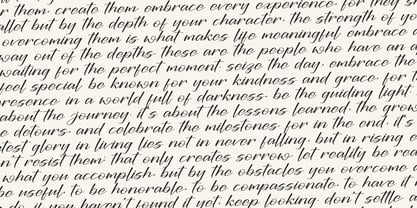 r them. create them. embrace every experience. for they s
allet but by the depth of your character. the strength of yo
overcoming them is what makes life meaningful. embrace o
way out of the depths. these are the people who have an a
waiting for the perfect moment. seize the day. embrace the
feel special. be known for your kindness and grace. for t
presence in a world full of darkness. be the guiding light
about the journey. it's about the lessons learned. the grow
e detours. and celebrate the milestones. for in the end. it's
test glory in living lies not in never falling. but in rising e
n't resist them. that only creates sorrow. let reality be rea
what you accomplish. but by the obstacles you overcome a
be useful. to be honorable. to be compassionate. to have it m
do. if you haven't found it yet. keep looking. don't settle.